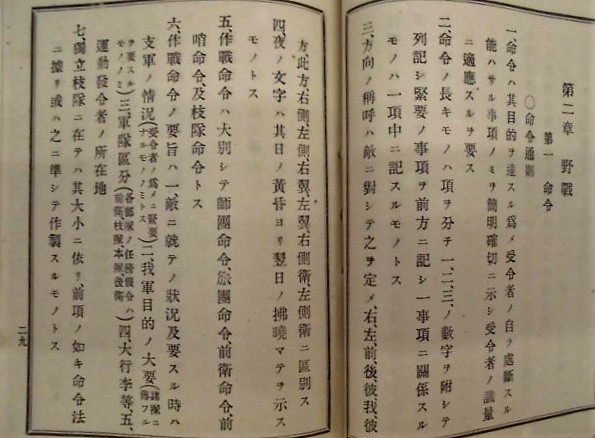 第二章 野戰
第一 命令
〇命令通則
一、命令ハ其目的ヲ達スル爲メ受令者ノ自ラ處斷スル
能ハサル事項ノミヲ簡明確切ニ示シ受令者ノ識量
ニ適應スルヲ要ス
二、命令ノ長キモノハ項ヲ分チ一、二、三、ノ數字ヲ附シテ
列記シ緊要ノ事項ヲ前方ニ記シ一事項ニ關係スル
モノハ一項中ニ記スルモノトス
三、方向ノ稱呼ハ敵ニ對シテ之ヲ定メ、右、左、前、後、彼、我、彼
方、此方、右側、左側、右翼、左翼、右側衛、左側衛ニ區別ス
四、夜ノ文字ハ其日ノ黃昏ヨリ翌日ノ拂曉マテヲ示ス
モノトス
五、作戰命令ハ大別シテ師團命令、旅團命令、前衛命令、前
哨命令及枝隊命令トス
六、作戰命令ノ要旨ハ一、敵ニ就テノ狀況及要スル時ハ
支軍ノ情況(受令者ノ爲メニ緊要ナルモノノミトス)二、我軍目的ノ大要(諸隊ニ傳フル
ヲ要スルモノノミ)三、軍隊區分(各部隊ノ任務假令ハ前衛、枝隊、本隊、後衛)四、大行李等、五、
運動發令者ノ所在地
七、獨立枝隊ニ在テハ其大小ニ依リ、前項ノ如キ命令法
ニ據リ或ハ之ニ準シテ作製スルモノトス
二九